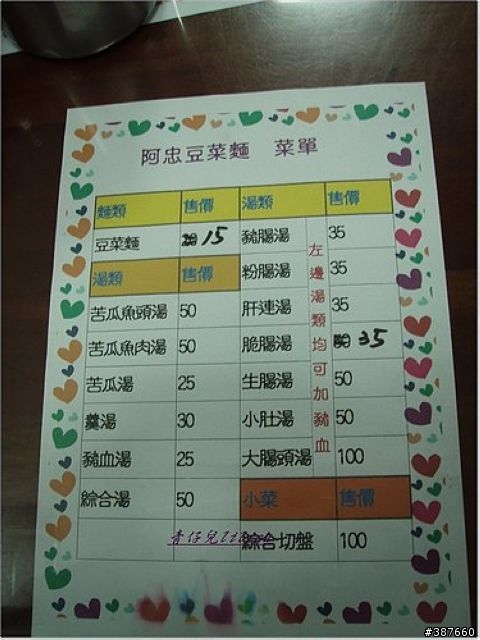 阿忠豆菜麵 菜單
麵類 售價 湯類 售價
豆菜麵 15 豬腸湯 35
湯類 售價 粉腸湯 35
苦瓜魚頭湯 50 肝連湯 35
苦瓜魚肉湯 50 脆腸湯 35
苦瓜湯 25 生腸湯 50
羹湯 30 小肚湯 50
豬血湯 25 大腸頭湯 100
左邊湯類均可加豬血
綜合湯 50 小菜 售價
綜合切盤 100
#387660